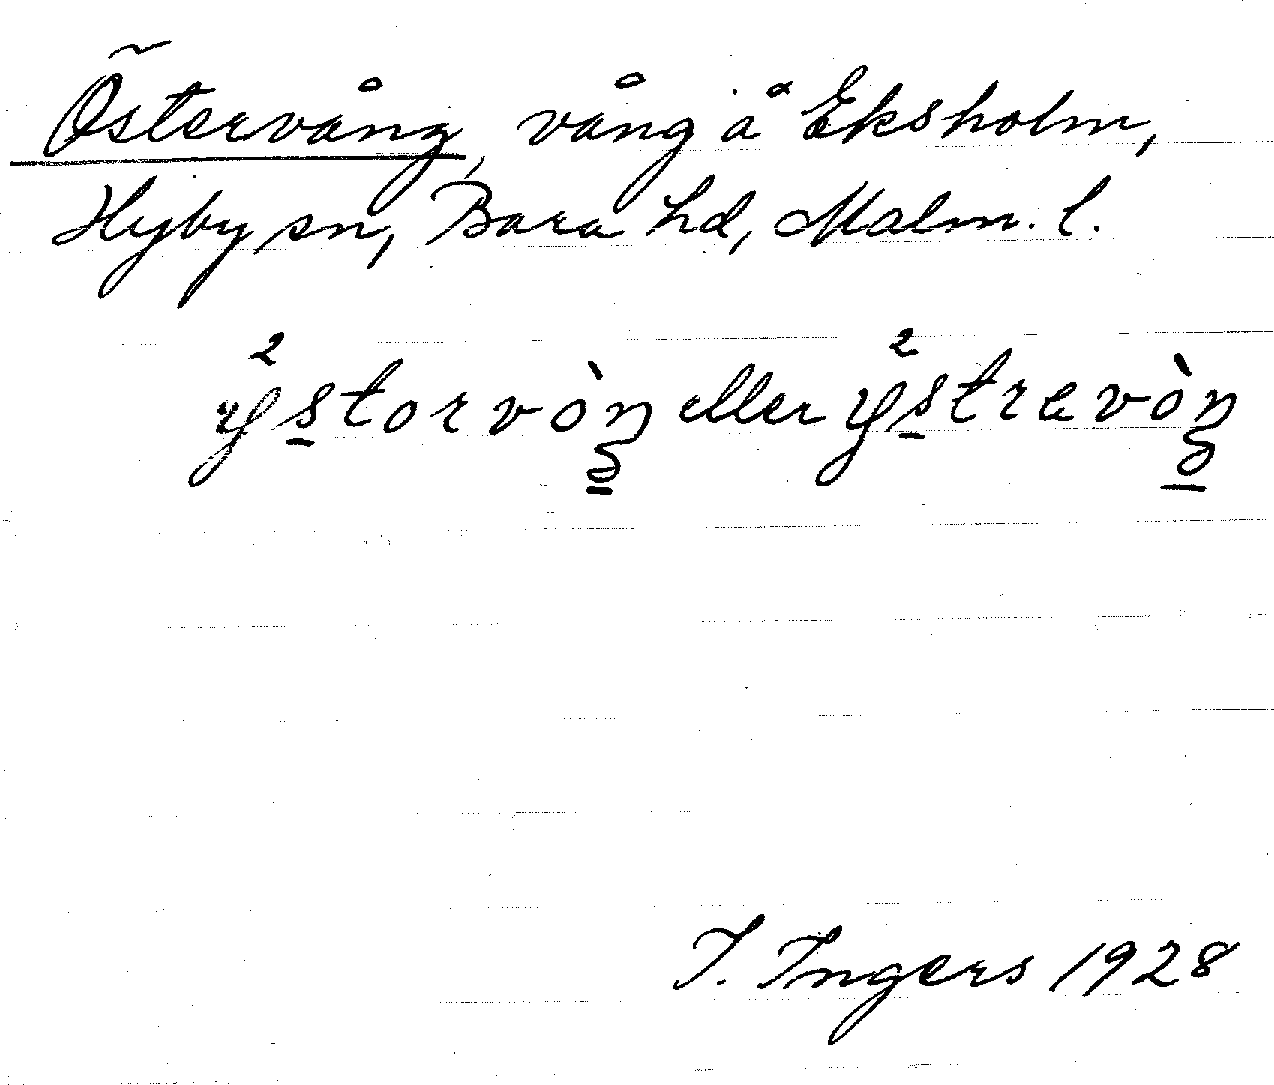 Östervång, vång å Eksholm,
Hyby sn, Bara hd, Malm. l.
y̌²s̲torvòŋ̲ eller y̌²s̲trevòŋ̲
I. Ingers 1928